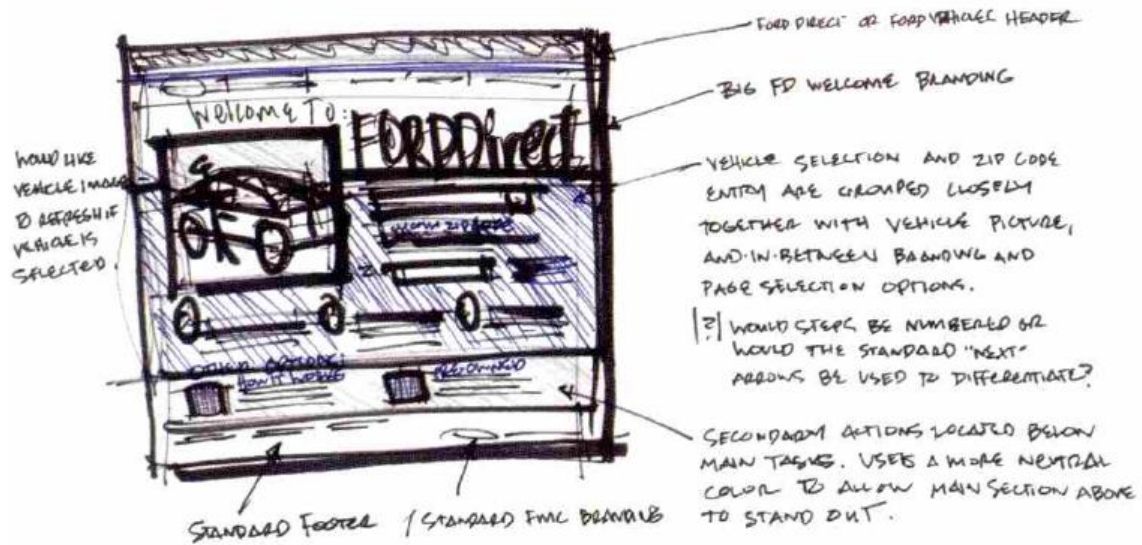 FORD DIRECT OR FORD VEHICLES HEADER
BIG FD WELCOME BRANDING
Welcome To:
FORDDirect
WOULD LIKE
VEHICLE IMAGE
TO REFRESH IF
VEHICLE IS
SELECTED.
VEHICLE SELECTION AND ZIP CODE
ENTRY ARE GROUPED CLOSELY
TOGETHER WITH VEHICLE PICTURE,
AND IN-BETWEEN BRANDING AND
PAGE SELECTION OPTIONS.
|?| WOULD STEPS BE NUMBERED OR
WOULD THE STANDARD "NEXT"
ARROWS BE USED TO DIFFERENTIATE?
ZIP CODE
OTHER OPTIONS:
HOW IT WORKS
PRE-OWNED
SECONDARY ACTIONS LOCATED BELOW
MAIN TASKS. USES A MORE NEUTRAL
COLOR TO ALLOW MAIN SECTION ABOVE
TO STAND OUT.
STANDARD FOOTER / STANDARD FMC BRANDING